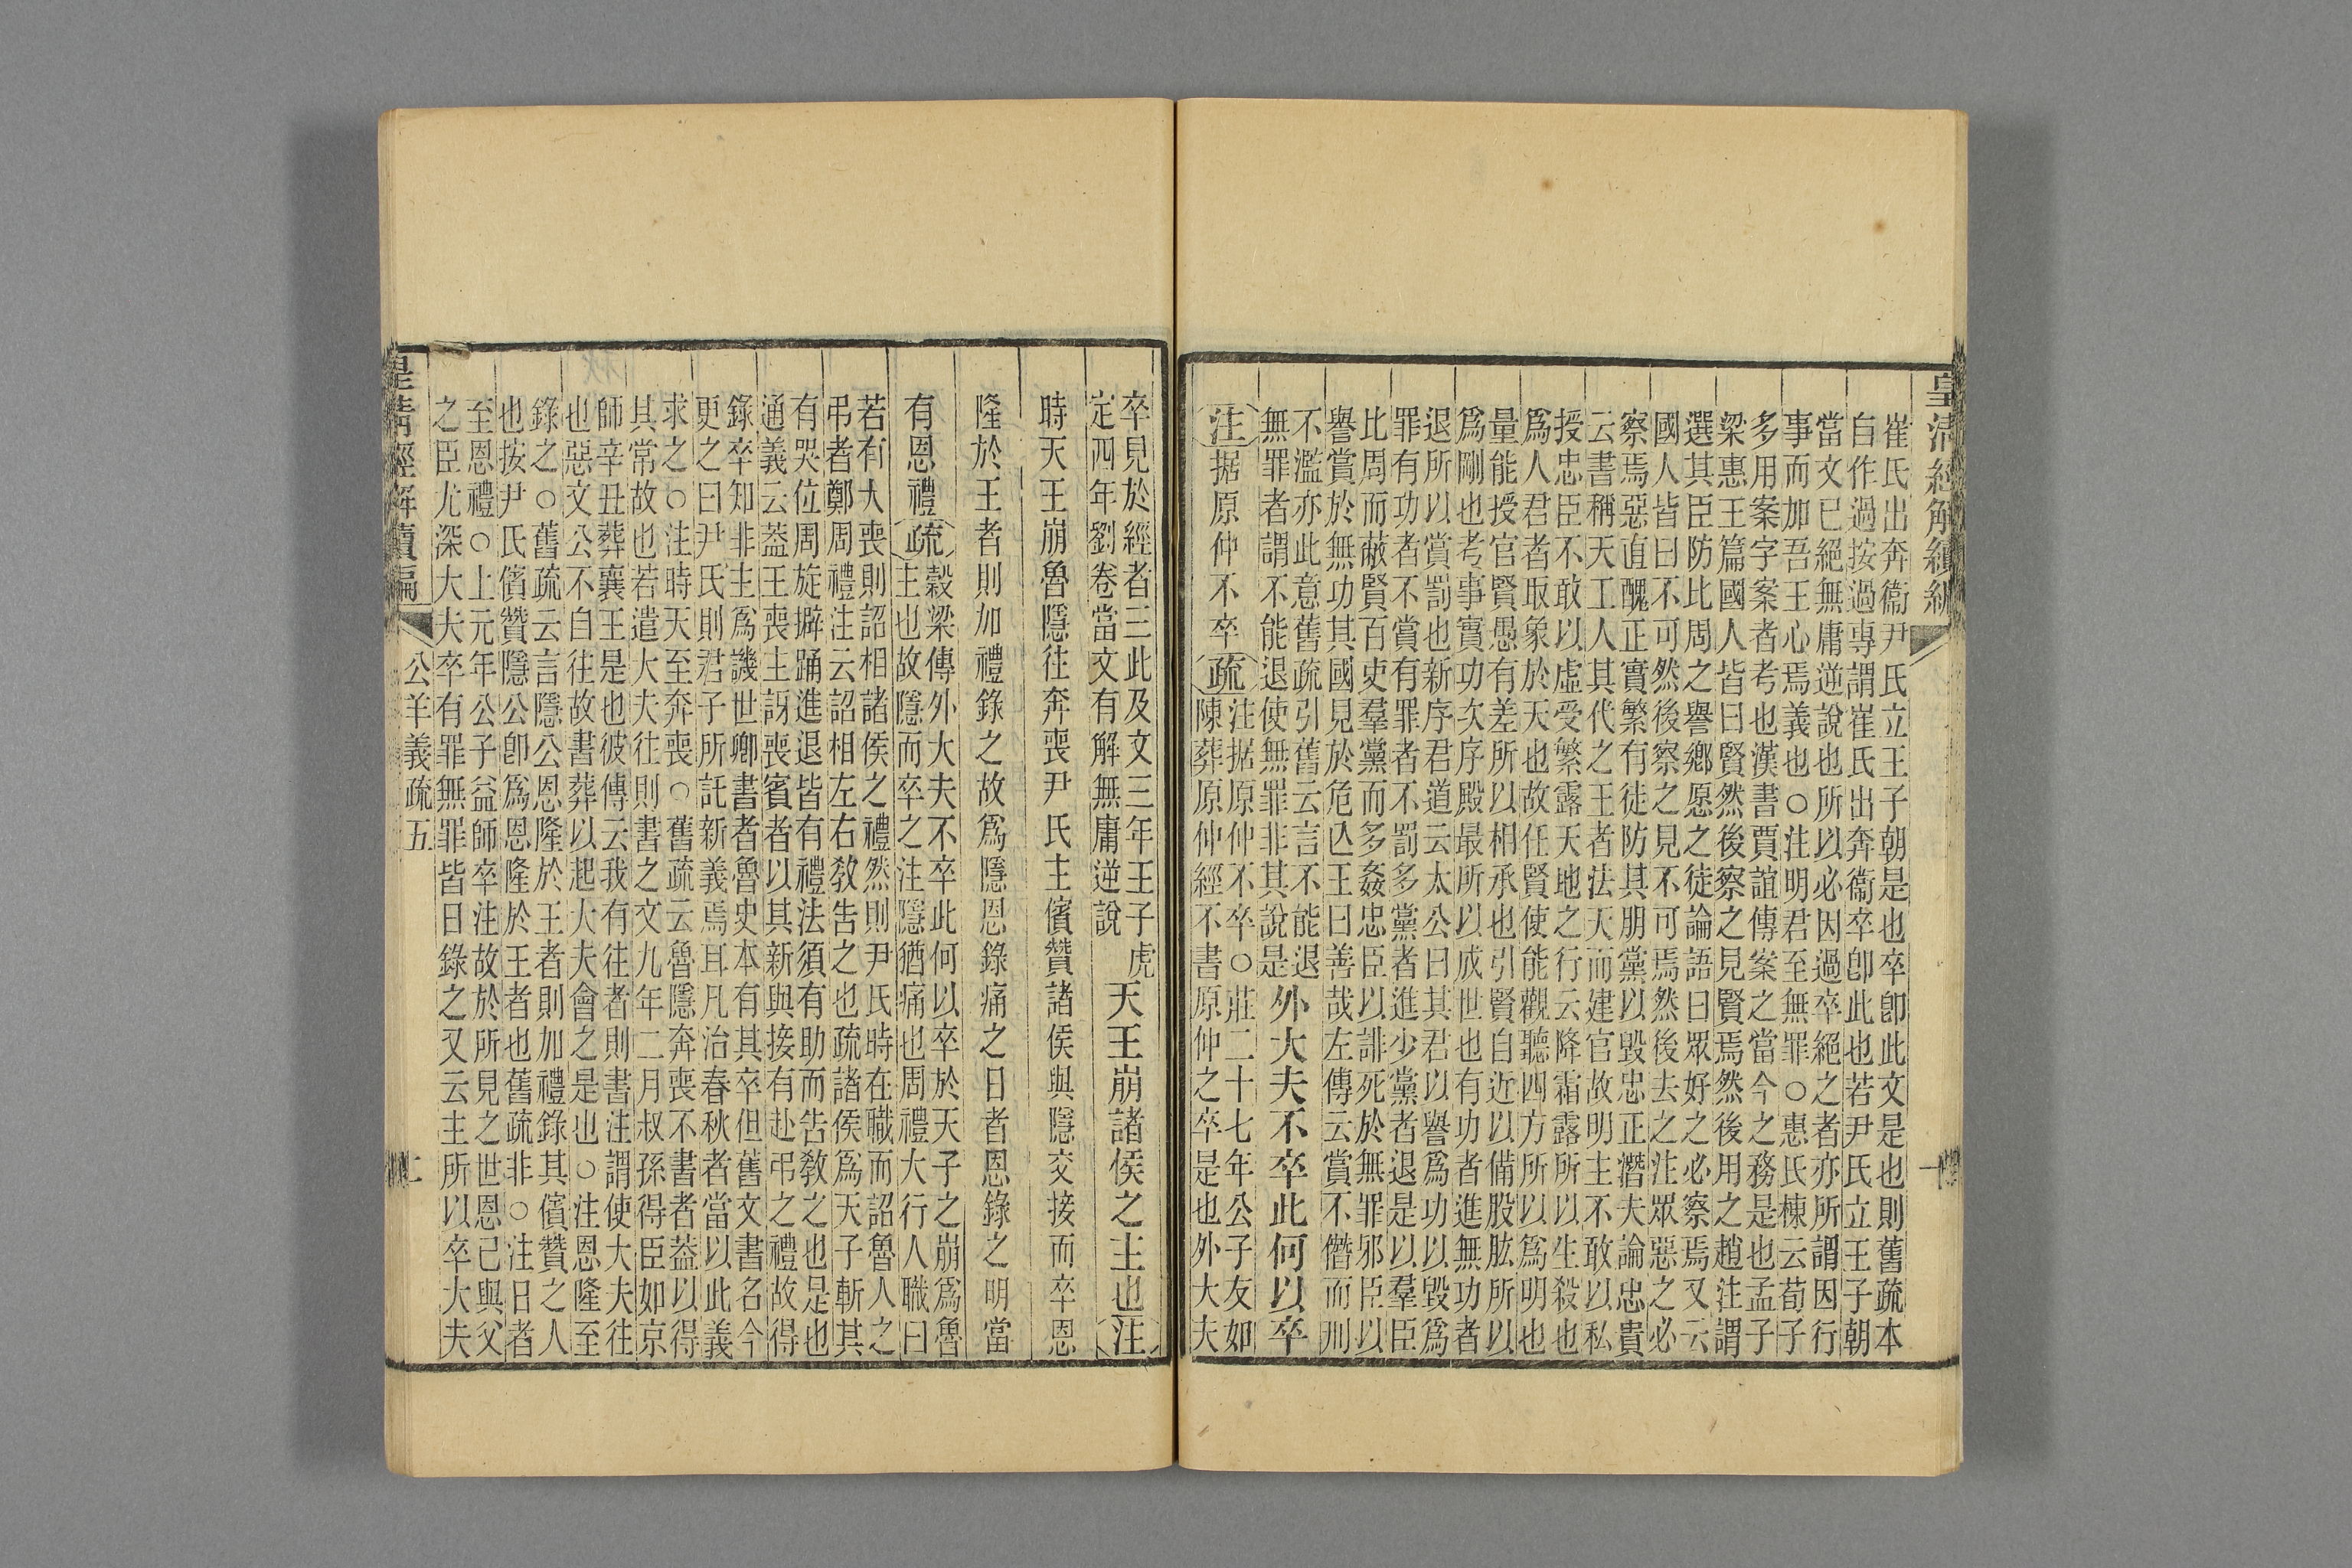 皇清經解續編
一
崔氏出奔衞尹氏立王子朝是也卒卽此文是也則舊疏本
自作過按過專謂崔氏出奔衞卒卽此也若尹氏立王子朝
當文已絕無庸逆說也所以必因過卒絕之者亦所謂因行
事而加吾王心焉義也○注明君至無罪○惠氏棟云荀子
多用案字案者考也漢書賈誼傳案之當今之務是也孟子
梁惠王篇國人皆曰賢然後察之見賢焉然後用之趙注謂
選其臣防比周之譽鄉愿之徒論語曰眾好之必察焉又云
國人皆曰不可然後察之見不可焉然後去之注眾惡之必
察焉惡直醜正實繁有徒防其朋黨以毀忠正潛夫論忠貴
云書稱天工人其代之王者法天而建官故明主不敢以私
授忠臣不敢以虛受繁露天地之行云降霜露所以生殺也
爲人君者取象於天也故任賢使能觀聽四方所以爲明也
量能授官賢愚有差所以相承也引賢自近以備股肱所以
爲剛也考事實功次序殿最所以成世也有功者進無功者
退所以賞罰也新序君道云太公曰其君以譽爲功以毀爲
罪有功者不賞有罪者不罰多黨者進少黨者退是以羣臣
比周而蔽賢百吏羣黨而多姦忠臣以誹死於無罪邪臣以
譽賞於無功其國見於危亾王曰善哉左傳云賞不僭而刑
不濫亦此意舊疏引舊云言不能退
無罪者謂不能退使無罪非其說是
外大夫不卒此何以卒
注据原仲不卒疏
注据原仲不卒○莊二十七年公子友如
陳葬原仲經不書原仲之卒是也外大夫
卒見於經者三此及文三年王子虎
定四年劉卷當文有解無庸逆說
天王崩諸侯之主也注
時天王崩魯隱往奔喪尹氏主儐贊諸侯與隱交接而卒恩
隆於王者則加禮錄之故爲隱恩錄痛之日者恩錄之明當
有恩禮疏
穀梁傳外大夫不卒此何以卒於天子之崩爲魯
主也故隱而卒之注隱猶痛也周禮大行人職曰
若有大喪則詔相諸侯之禮然則尹氏時在職而詔魯人之
弔者鄭周禮注云詔相左右教告之也疏諸侯爲天子斬其
有哭位周旋擗踊進退皆有禮法須有助而告教之也是也
通義云葢王喪主訝喪賓者以其新與接有赴弔之禮故得
錄卒知非主爲譏世卿書者魯史本有其卒但舊文書名今
更之曰尹氏則君子所託新義焉耳凡治春秋者當以此義
求之○注時天至奔喪○舊疏云魯隱奔喪不書者葢以得
其常故也若遣大夫往則書之文九年二月叔孫得臣如京
師辛丑葬襄王是也彼傳云我有往者則書注謂使大夫往
也惡文公不自往故書葬以起大夫會之是也○注恩隆至
錄之○舊疏云言隱公恩隆於王者則加禮錄其儐贊之人
也按尹氏儐贊隱公卽爲恩隆於王者也舊疏非○注日者
至恩禮○上元年公子益師卒注故於所見之世恩己與父
之臣尤深大夫卒有罪無罪皆日錄之又云主所以卒大夫
皇清經解續編
公羊義疏五
二